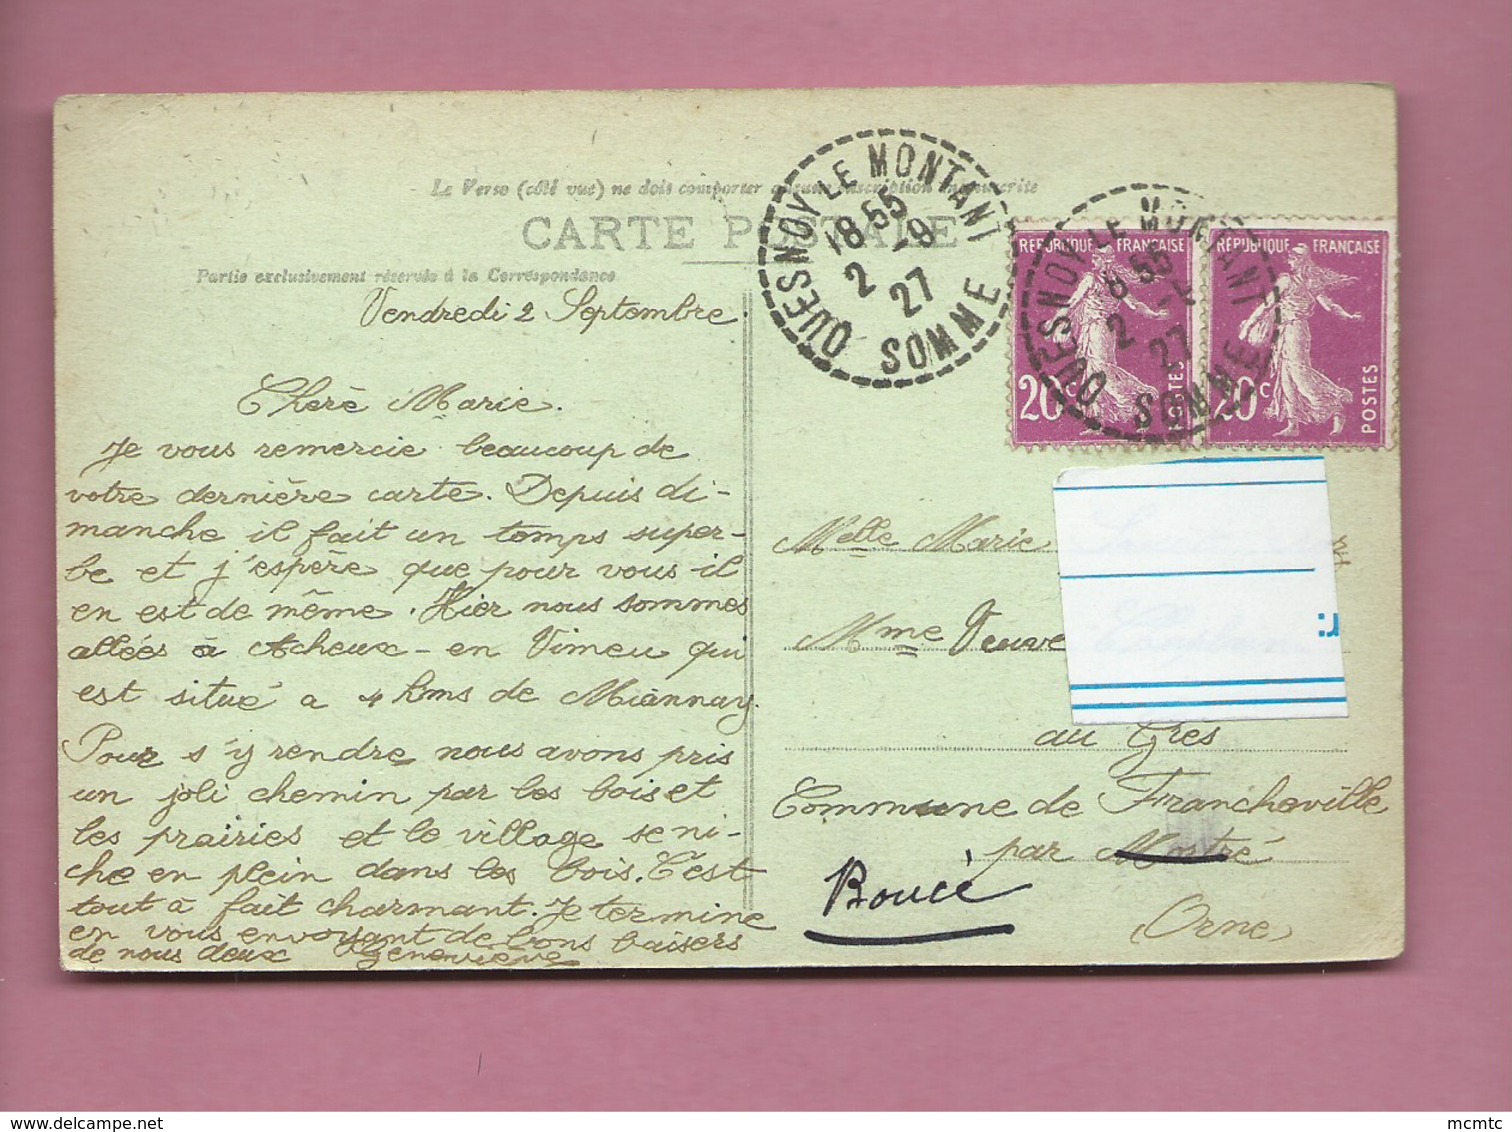 Le Verso (côté vue) ne doit comporter aucune inscription manuscrite
CARTE POSTALE
Partie exclusivement réservée à la Correspondance
Vendredi 2 Septembre.
Chère Marie.
Je vous remercie beaucoup de
votre dernière carte. Depuis di-
manche il fait un temps super-
be et j'espère que pour vous il
en est de même. Hier nous sommes
allées à Acheux-en Vimeu qui
est situé a 4 kms de Miannay.
Pour s'y rendre nous avons pris
un joli chemin par les bois et
les prairies et le village se ni-
che en plein dans les bois. C'est
tout à fait charmant. Je termine
en vous envoyant de bons baisers
de nous deux Geneviève
QUESNOY LE MONTANT
18 55
2 -9
27
SOMME
QUESNOY LE MONTANT
8 55
2
27
SOMME
REPUBLIQUE FRANÇAISE
20c
POSTES
REPUBLIQUE FRANÇAISE
20c
POSTES
Melle Marie
Mme Veuve
r:
au Grès
Commune de Francheville
par Mortré
Boucé
Orne
mcmtc